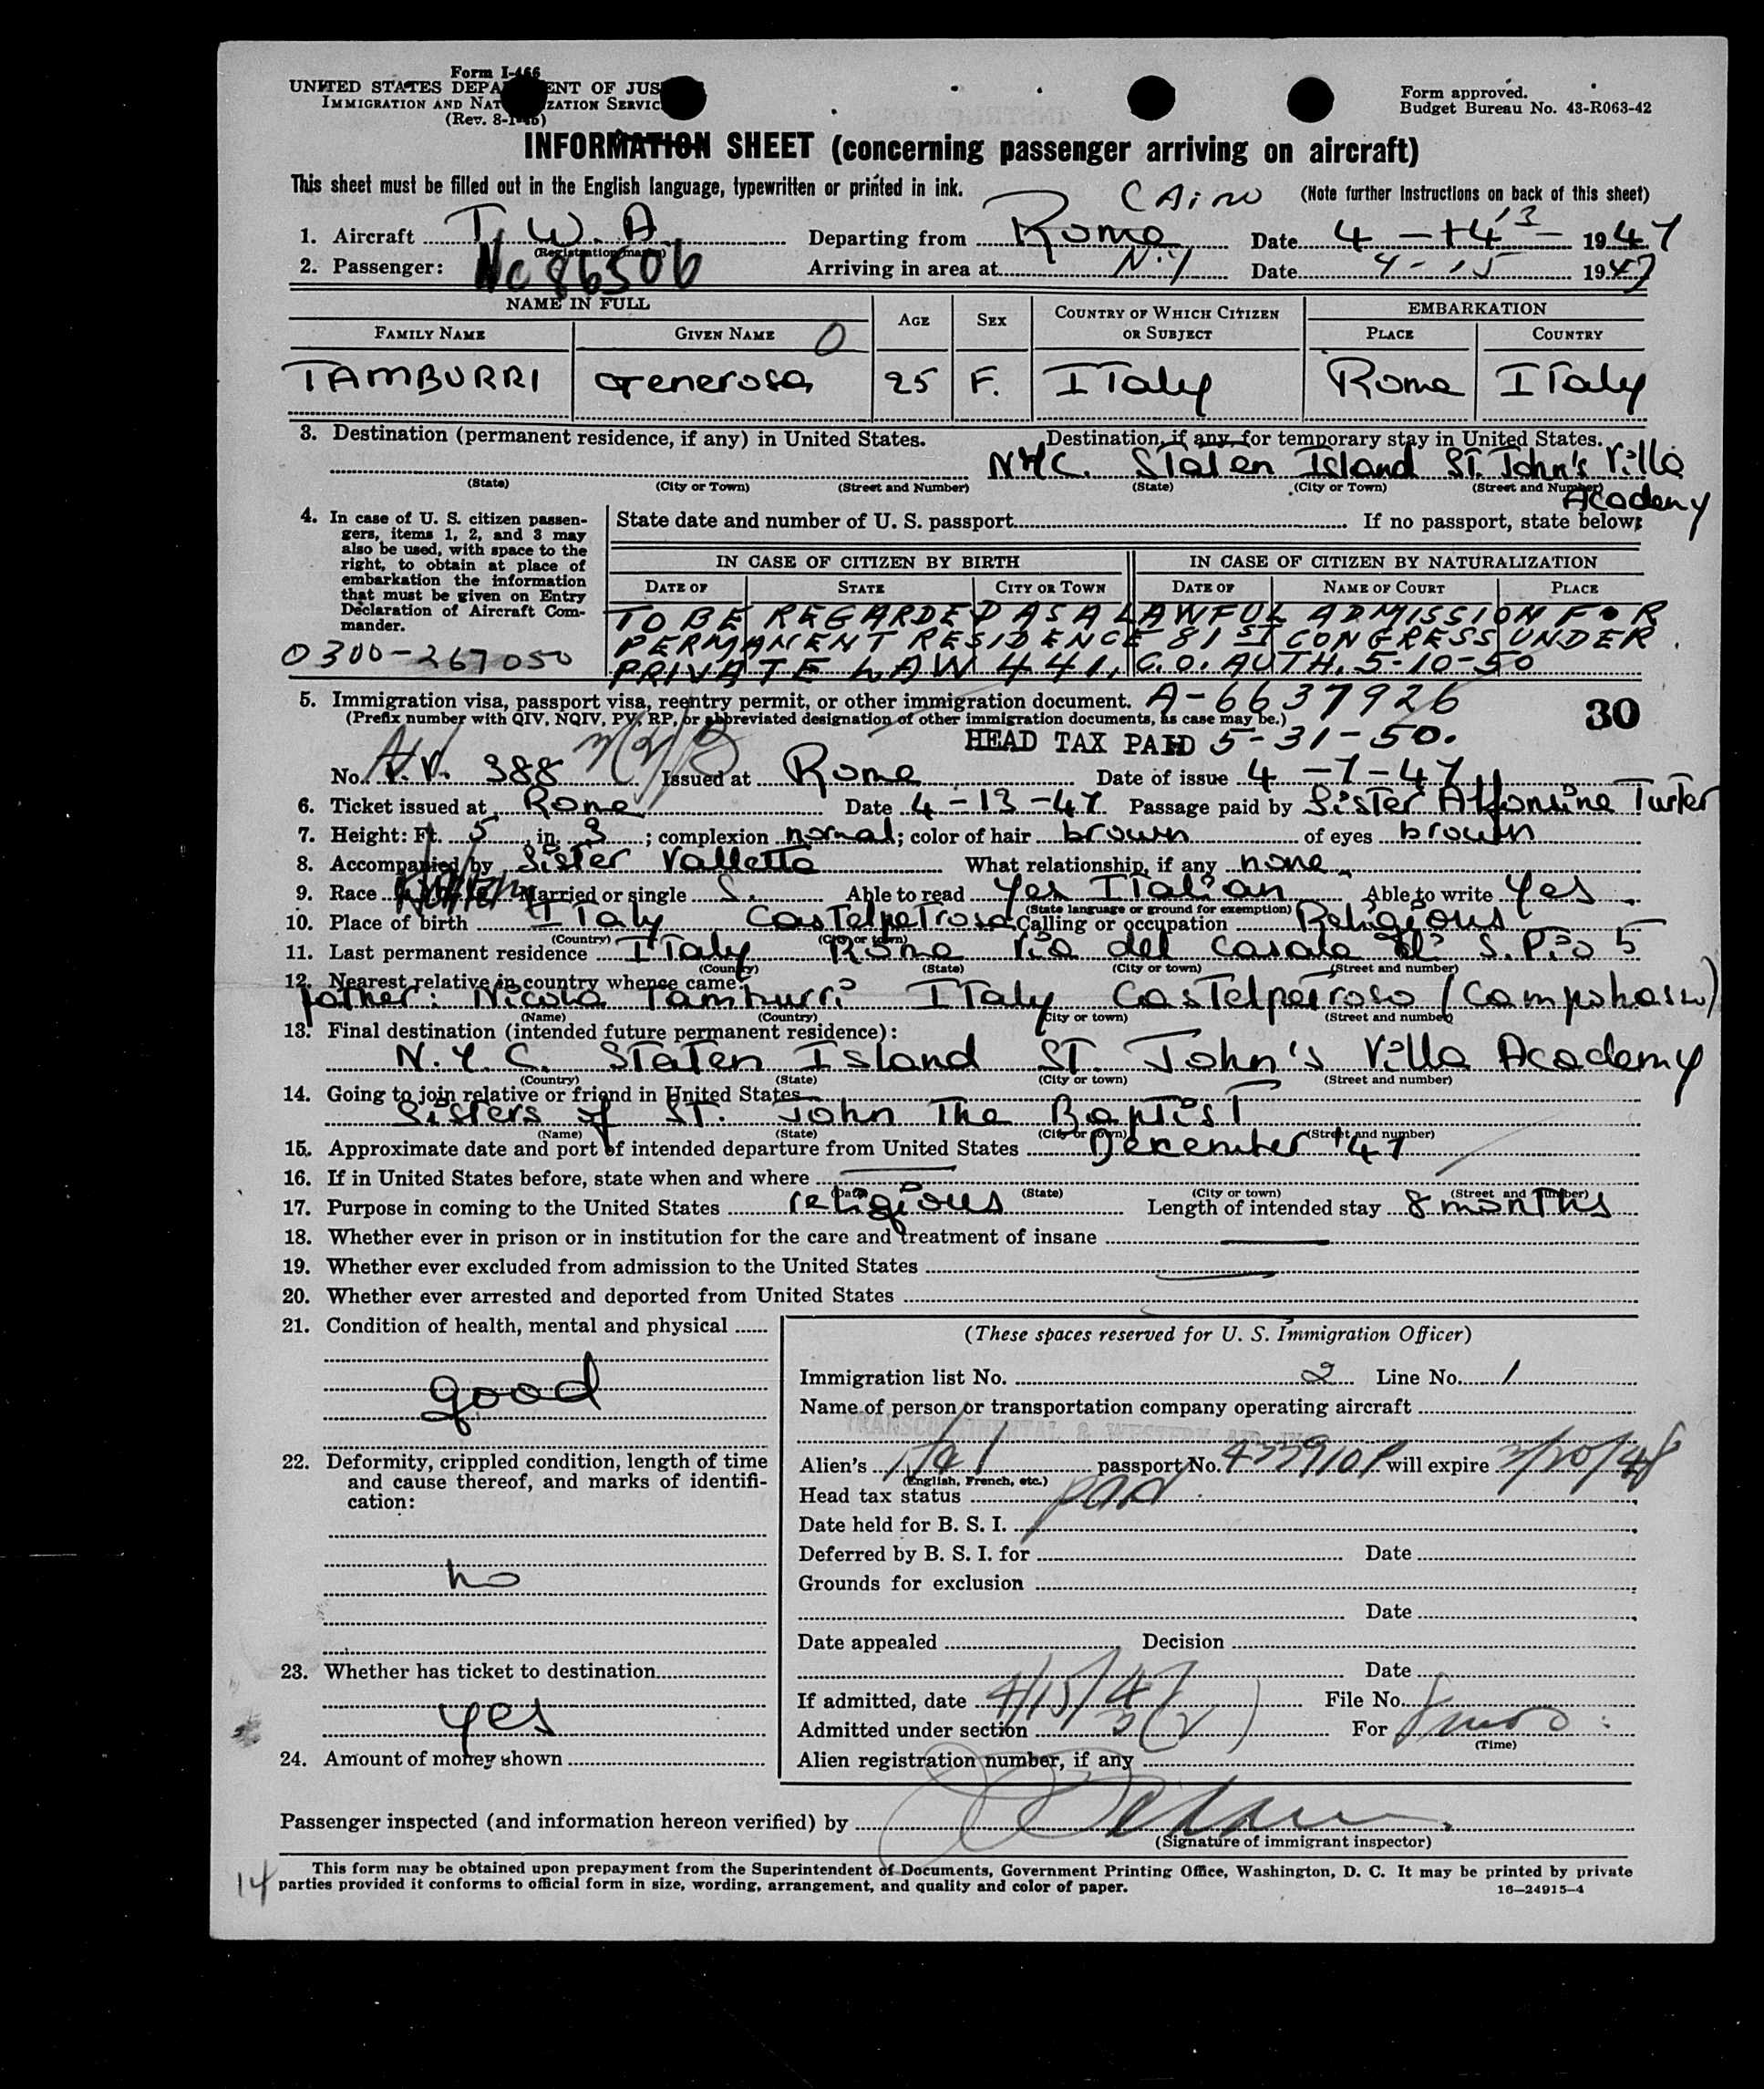 Form I-466
UNITED STATES DEPA ENT OF JUS
IMMIGRATION AND NAT ZATION SERVIC
(Rev. 8-1-45)
Form approved.
Budget Bureau No. 43-R063-42
INFORMATION SHEET (concerning passenger arriving on aircraft)
This sheet must be filled out in the English language, typewritten or printed in ink. (Note further instructions on back of this sheet)
CAiro
1. Aircraft T. W. A. Departing from Roma Date 4-14 13- 1947
(Registration marks)
2. Passenger: Nc 86506 Arriving in area at N.Y Date 4-15 1947
NAME IN FULL AGE SEX COUNTRY OF WHICH CITIZEN OR SUBJECT EMBARKATION
FAMILY NAME GIVEN NAME O PLACE COUNTRY
TAMBURRI Generosa 25 F. ITaly Roma ITaly
3. Destination (permanent residence, if any) in United States. Destination, if any, for temporary stay in United States.
NYC. STaTen Island ST. John's Villa
(State) (City or Town) (Street and Number) (State) (City or Town) (Street and Number)
Academy
4. In case of U. S. citizen passengers, items 1, 2, and 3 may also be used, with space to the right, to obtain at place of embarkation the information that must be given on Entry Declaration of Aircraft Commander.
State date and number of U. S. passport If no passport, state below:
IN CASE OF CITIZEN BY BIRTH IN CASE OF CITIZEN BY NATURALIZATION
DATE OF STATE CITY OR TOWN DATE OF NAME OF COURT PLACE
TO BE REGARDED AS A LAWFUL ADMISSION FOR
PERMANENT RESIDENCE 81ST CONGRESS UNDER
PRIVATE LAW 441, C.O. AUTH. 5-10-50
0300-267050
5. Immigration visa, passport visa, reentry permit, or other immigration document. A-6637926
(Prefix number with QIV, NQIV, PV, RP, or abbreviated designation of other immigration documents, as case may be.)
30
HEAD TAX PAID 5-31-50.
No. V. 388 Issued at Roma Date of issue 4-7-47
6. Ticket issued at Rome Date 4-13-47 Passage paid by Sister Alfonsina Turter
7. Height: Ft. 5 in. 3; complexion normal; color of hair brown of eyes brown
8. Accompanied by Sister Valletta What relationship, if any none
9. Race Married or single S. Able to read Yes ITalian Able to write Yes
(State language or ground for exemption)
10. Place of birth ITaly CasTelpeTroso Calling or occupation Religious
(Country) (City or town)
11. Last permanent residence ITaly Roma Via del Casale di S. Pio 5
(Country) (State) (City or town) (Street and number)
12. Nearest relative in country whence came:
father: Nicola Tamburri ITaly CasTelpeTroso (Campobasso)
(Name) (Country) (City or town) (Street and number)
13. Final destination (intended future permanent residence):
N.Y.C. STaTen Island ST. John's Villa Academy
(Country) (State) (City or town) (Street and number)
14. Going to join relative or friend in United States
Sisters of ST. John The BaptisT
(Name) (State) (City or town) (Street and number)
15. Approximate date and port of intended departure from United States December '47
16. If in United States before, state when and where
(Date) (State) (City or town) (Street and number)
17. Purpose in coming to the United States religious Length of intended stay 8 monThs
18. Whether ever in prison or in institution for the care and treatment of insane
19. Whether ever excluded from admission to the United States
20. Whether ever arrested and deported from United States
21. Condition of health, mental and physical
good
22. Deformity, crippled condition, length of time and cause thereof, and marks of identification:
no
23. Whether has ticket to destination
yes
24. Amount of money shown
(These spaces reserved for U. S. Immigration Officer)
Immigration list No. 2 Line No. 1
Name of person or transportation company operating aircraft
TRANSCONTINENTAL & WESTERN AIR, INC.
Alien's Ital passport No. 433910P will expire 3/20/48
(English, French, etc.)
Head tax status paid
Date held for B. S. I.
Deferred by B. S. I. for Date
Grounds for exclusion
Date
Date appealed Decision
Date
If admitted, date 4/15/47 File No.
Admitted under section 3(2) For 8 mos
(Time)
Alien registration number, if any
Passenger inspected (and information hereon verified) by
(Signature of immigrant inspector)
This form may be obtained upon prepayment from the Superintendent of Documents, Government Printing Office, Washington, D. C. It may be printed by private
parties provided it conforms to official form in size, wording, arrangement, and quality and color of paper. 16—24915-4
14